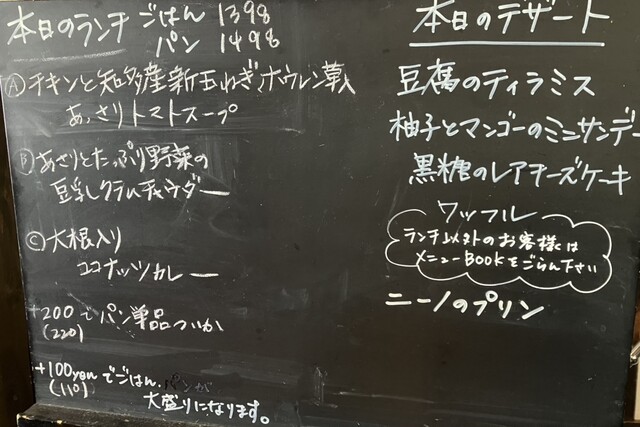 本日のランチ ごはん 1398
パン 1498
Ⓐチキンと知多産新玉ねぎ、ホウレン草入
あっさりトマトスープ
Ⓑあさりとたっぷり野菜の
豆乳クラムチャウダー
Ⓒ大根入り
ココナッツカレー
+200でパン単品ついか
(220)
+100yenでごはん、パンが
(110)
大盛りになります。
本日のデザート
豆腐のティラミス
柚子とマンゴーのミニサンデー
黒糖のレアチーズケーキ
ワッフル
ランチ以外のお客様は
メニューBOOKをごらん下さい
ニーノのプリン